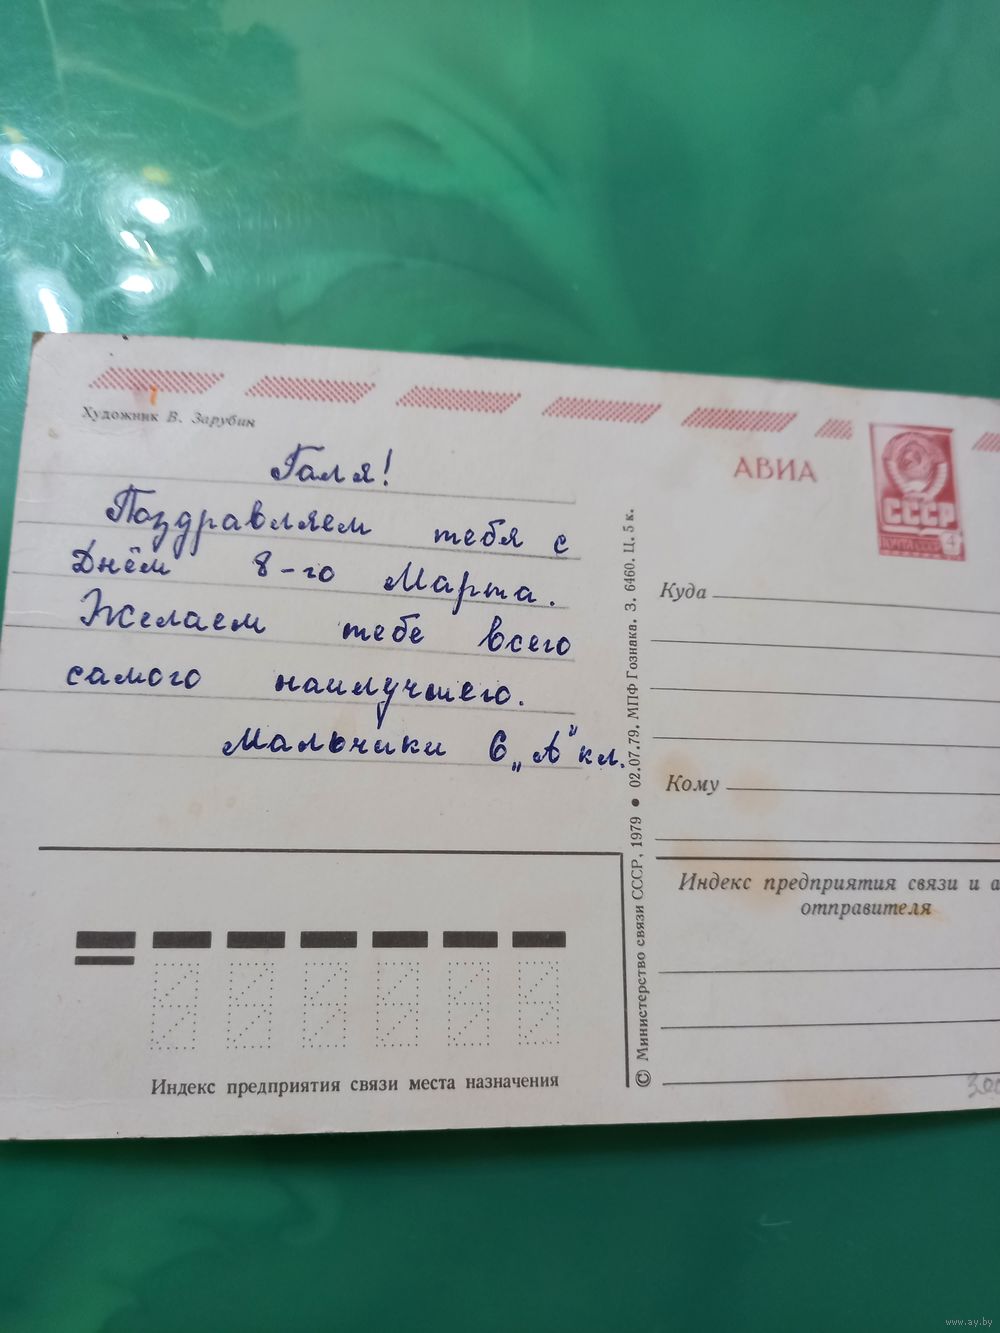 Художник В. Зарубин
Галя!
Поздравляем тебя с
Днём 8-го Марта.
Желаем тебе всего
самого наилучшего.
Мальчики 6 „А“ кл.
Индекс предприятия связи места назначения
© Министерство связи СССР, 1979 ● 02.07.79. МПФ Гознака. З. 6460. Ц. 5 к.
АВИА
СССР
ПОЧТА СССР 4
Куда
Кому
Индекс предприятия связи и а
отправителя
300
www.ay.by